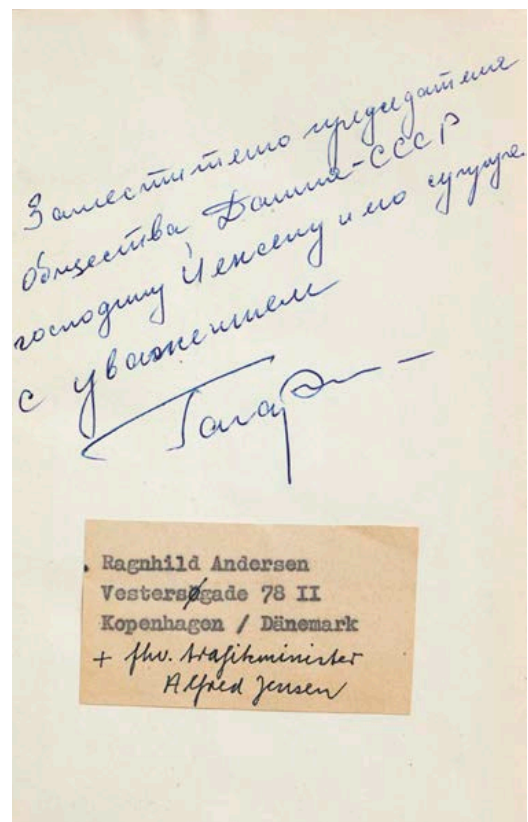 Заместителю председателя
общества „Дания-СССР
господину Йенсену и его супруге
с уважением
Гагарин
Ragnhild Andersen
Vestersøgade 78 II
Kopenhagen / Dänemark
+ fhv. trafikminister
Alfred Jensen